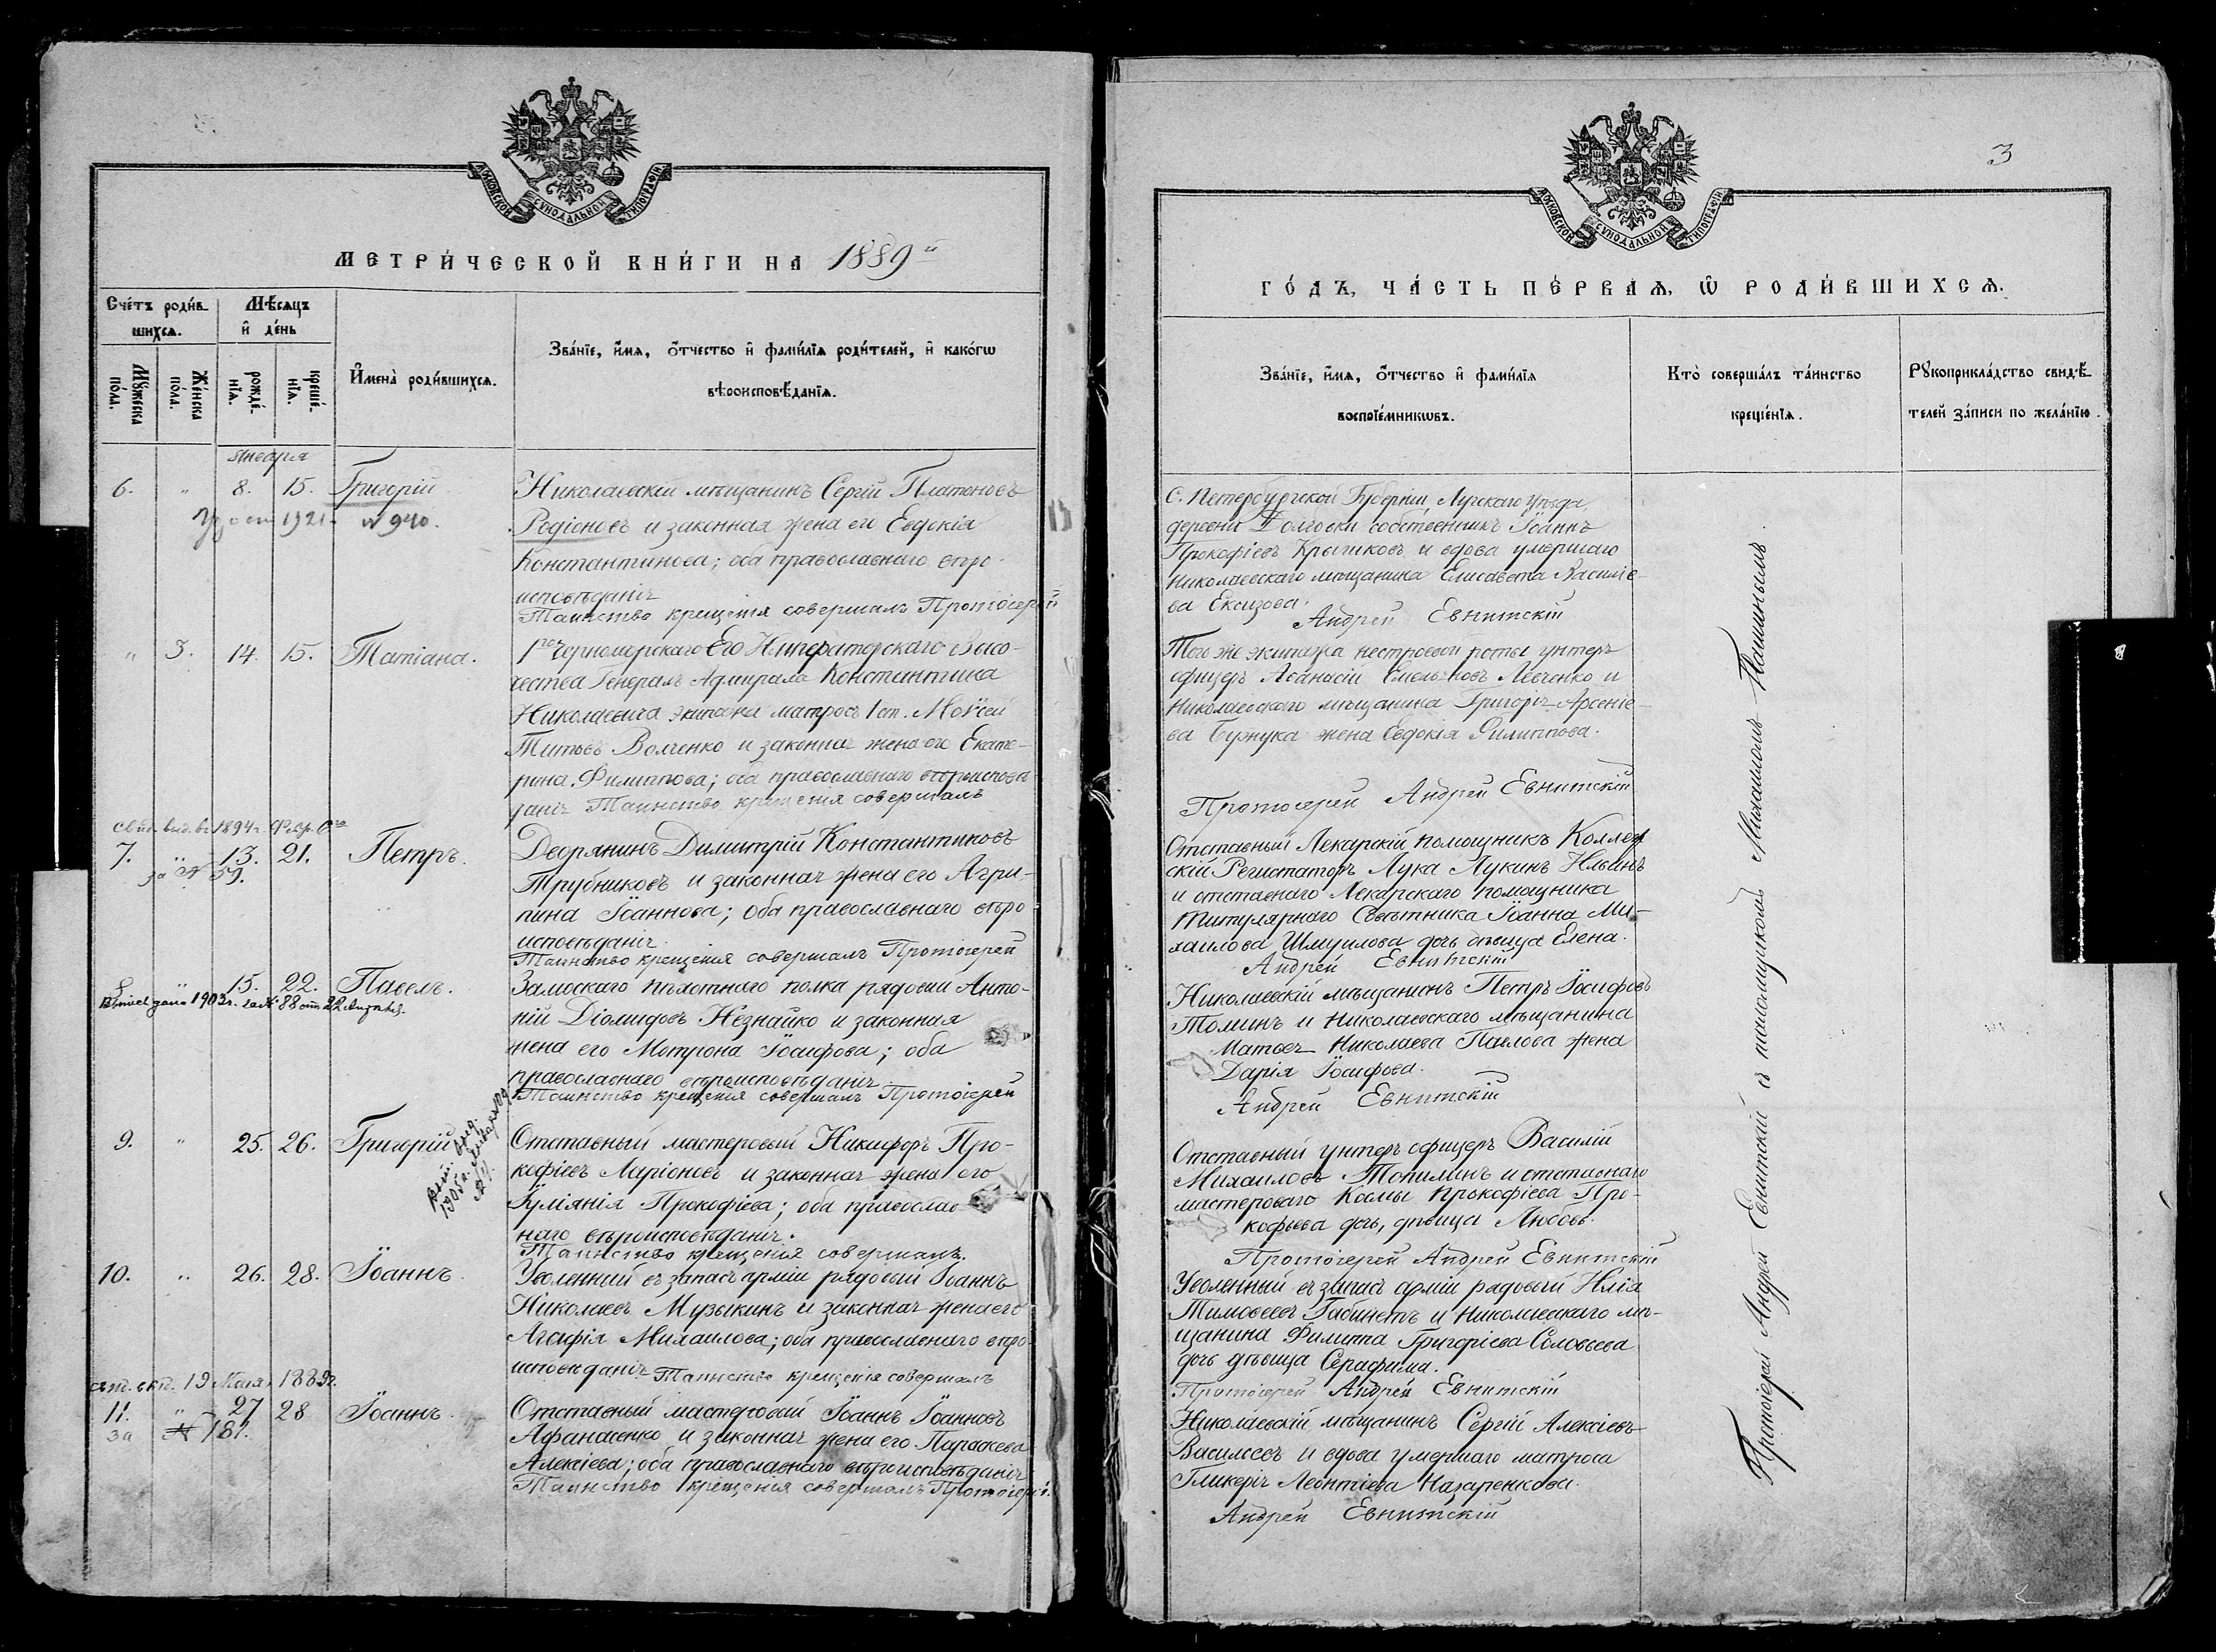 МОСКОВСКОЙ СУНОДАЛЬНОЙ ТИПОГРАФІИ
МЕТРИ́ЧЕСКОЙ КНИ́ГИ НА 1889й
Сче́тъ роди́в-
шихсѧ.
Мѣ́сѧцъ
и҆ де́нь
Мꙋ́жеска
по́ла.
Же́нска
по́ла.
рожде́-
нїѧ.
креще́-
нїѧ.
И҆мена̀ роди́вшихсѧ.
Зва́нїе, и҆́мѧ, ѻ҆́тчество и҆ фами́лїѧ роди́телей, и҆ како́гѡ
вѣроисповѣ́данїѧ.
Января
6. " 8. 15. Григорій
1921 №940.
Николаевскій мѣщанинъ Сергій Платоновъ
Родіоновъ и законная жена его Евдокія
Константинова; оба православнаго вѣро-
исповѣданія
Таинство крещенія совершалъ Протоіерей
" 3. 14. 15. Татіана.
1го Черноморскаго Его Императорскаго Высо-
чества Генералъ Адмирала Константина
Николаевича экипажа матросъ 1 ст. Моѵсей
Титовъ Волченко и законная жена его Екате-
рина Филиппова; оба православнаго вѣроисповѣ-
данія Таинство крещенія совершалъ
свид. выд. въ 1894 г. Февр.
7. " 13. 21. Петръ.
за № 59.
Дворянинъ Димитрій Константиновъ
Трубниковъ и законная жена его Агри-
пина Іоаннова; оба православнаго вѣро
исповѣданія.
Таинство крещенія совершалъ Протоіерей
8 " 15. 22. Павелъ.
1903г. за № 88 от 22
Замоскаго пѣхотнаго полка рядовой Анто-
ній Діомидовъ Незнайко и законная
жена его Мотрона Іосифова; оба
православнаго вѣроисповѣданія
Таинство крещенія совершалъ Протоіерей
9. " 25. 26. Григорій
выд.
1905г. Января
Отставный мастеровый Никифоръ Про-
кофіевъ Ларіоновъ и законная жена его
Іуліанія Прокофіева; оба православ-
наго вѣроисповѣданія.
Таинство крещенія совершалъ.
10. " 26. 28. Іоаннъ.
Уволенный въ запасъ арміи рядовый Іоаннъ
Николаевъ Музыкинъ и законная жена его
Агафія Михаилова; оба православнаго вѣро-
исповѣданія Таинство крещенія совершалъ
19 Мая 1889г.
11. " 27 28 Іоаннъ.
за № 181.
Отставный мастеровый Іоаннъ Іоанновъ
Афанасенко и законная жена его Параскева
Алексіева; оба православнаго вѣроисповѣданія
Таинство крещенія совершалъ Протоіерей.
3
МОСКОВСКОЙ СУНОДАЛЬНОЙ ТИПОГРАФІИ
ГО́ДЪ, ЧА́СТЬ ПЕ́РВАѦ, Ѡ҆ РОДИ́ВШИХСѦ.
Зва́нїе, и҆́мѧ, ѻ҆́тчество и҆ фами́лїѧ
воспрїе́мникѡвъ.
Кто̀ соверша́лъ та́инство
креще́нїѧ.
Рꙋкоприкла́дство свидѣ́-
телей за́писи по жела́нїю.
С. Петербургской Губерніи, Лужскаго Уѣзда,
деревни собственникъ Іоаннъ
Прокофіевъ Крытиковъ и вдова умершаго
Николаевскаго мѣщанина Елисавета Василіе-
ва
Андрей Евнитскій
Того же экипажа нестроевой роты унтеръ
офицеръ Аѳанасій Емельяновъ Левченко и
Николаевскаго мѣщанина Григорія Арсеніе-
ва Бужука жена Евдокія Филиппова.
Протоіерей Андрей Евнитскій
Отставный Лекарскій помощникъ Коллеж
скій Регистаторъ Лука Лукинъ Ильинъ
и отставнаго Лекарскаго помощника
Титулярнаго Совѣтника Іоанна Ми-
хаилова Шмуилова дочь дѣвица Елена.
Андрей Евнитскій
Николаевскій мѣщанинъ Петръ Іосифовъ
Томинъ и Николаевскаго мѣщанина
Матвея Николаева Павлова жена
Дарія Іосифова.
Андрей Евнитскій
Отставный унтеръ офицеръ Василій
Михаиловъ Топилинъ и отставнаго
мастероваго Космы Прокофіева Про-
кофьева дочь, дѣвица Любовь.
Протоіерей Андрей Евнитскій
Уволенный въ запасъ арміи рядовый Илія
Тимоѳеевъ Габинетъ и Николаевскаго мѣ-
щанина Филиппа Григоріева Соловьева
дочь дѣвица Серафима.
Протоіерей Андрей Евнитскій
Николаевскій мѣщанинъ Сергій Алексіевъ
Васильевъ и вдова умершаго матроса
Гликерія Леонтіева Назаренкова.
Андрей Евнитскій
Протоіерей Андрей Евнитскій съ псаломщикомъ Михаиломъ Пашинымъ